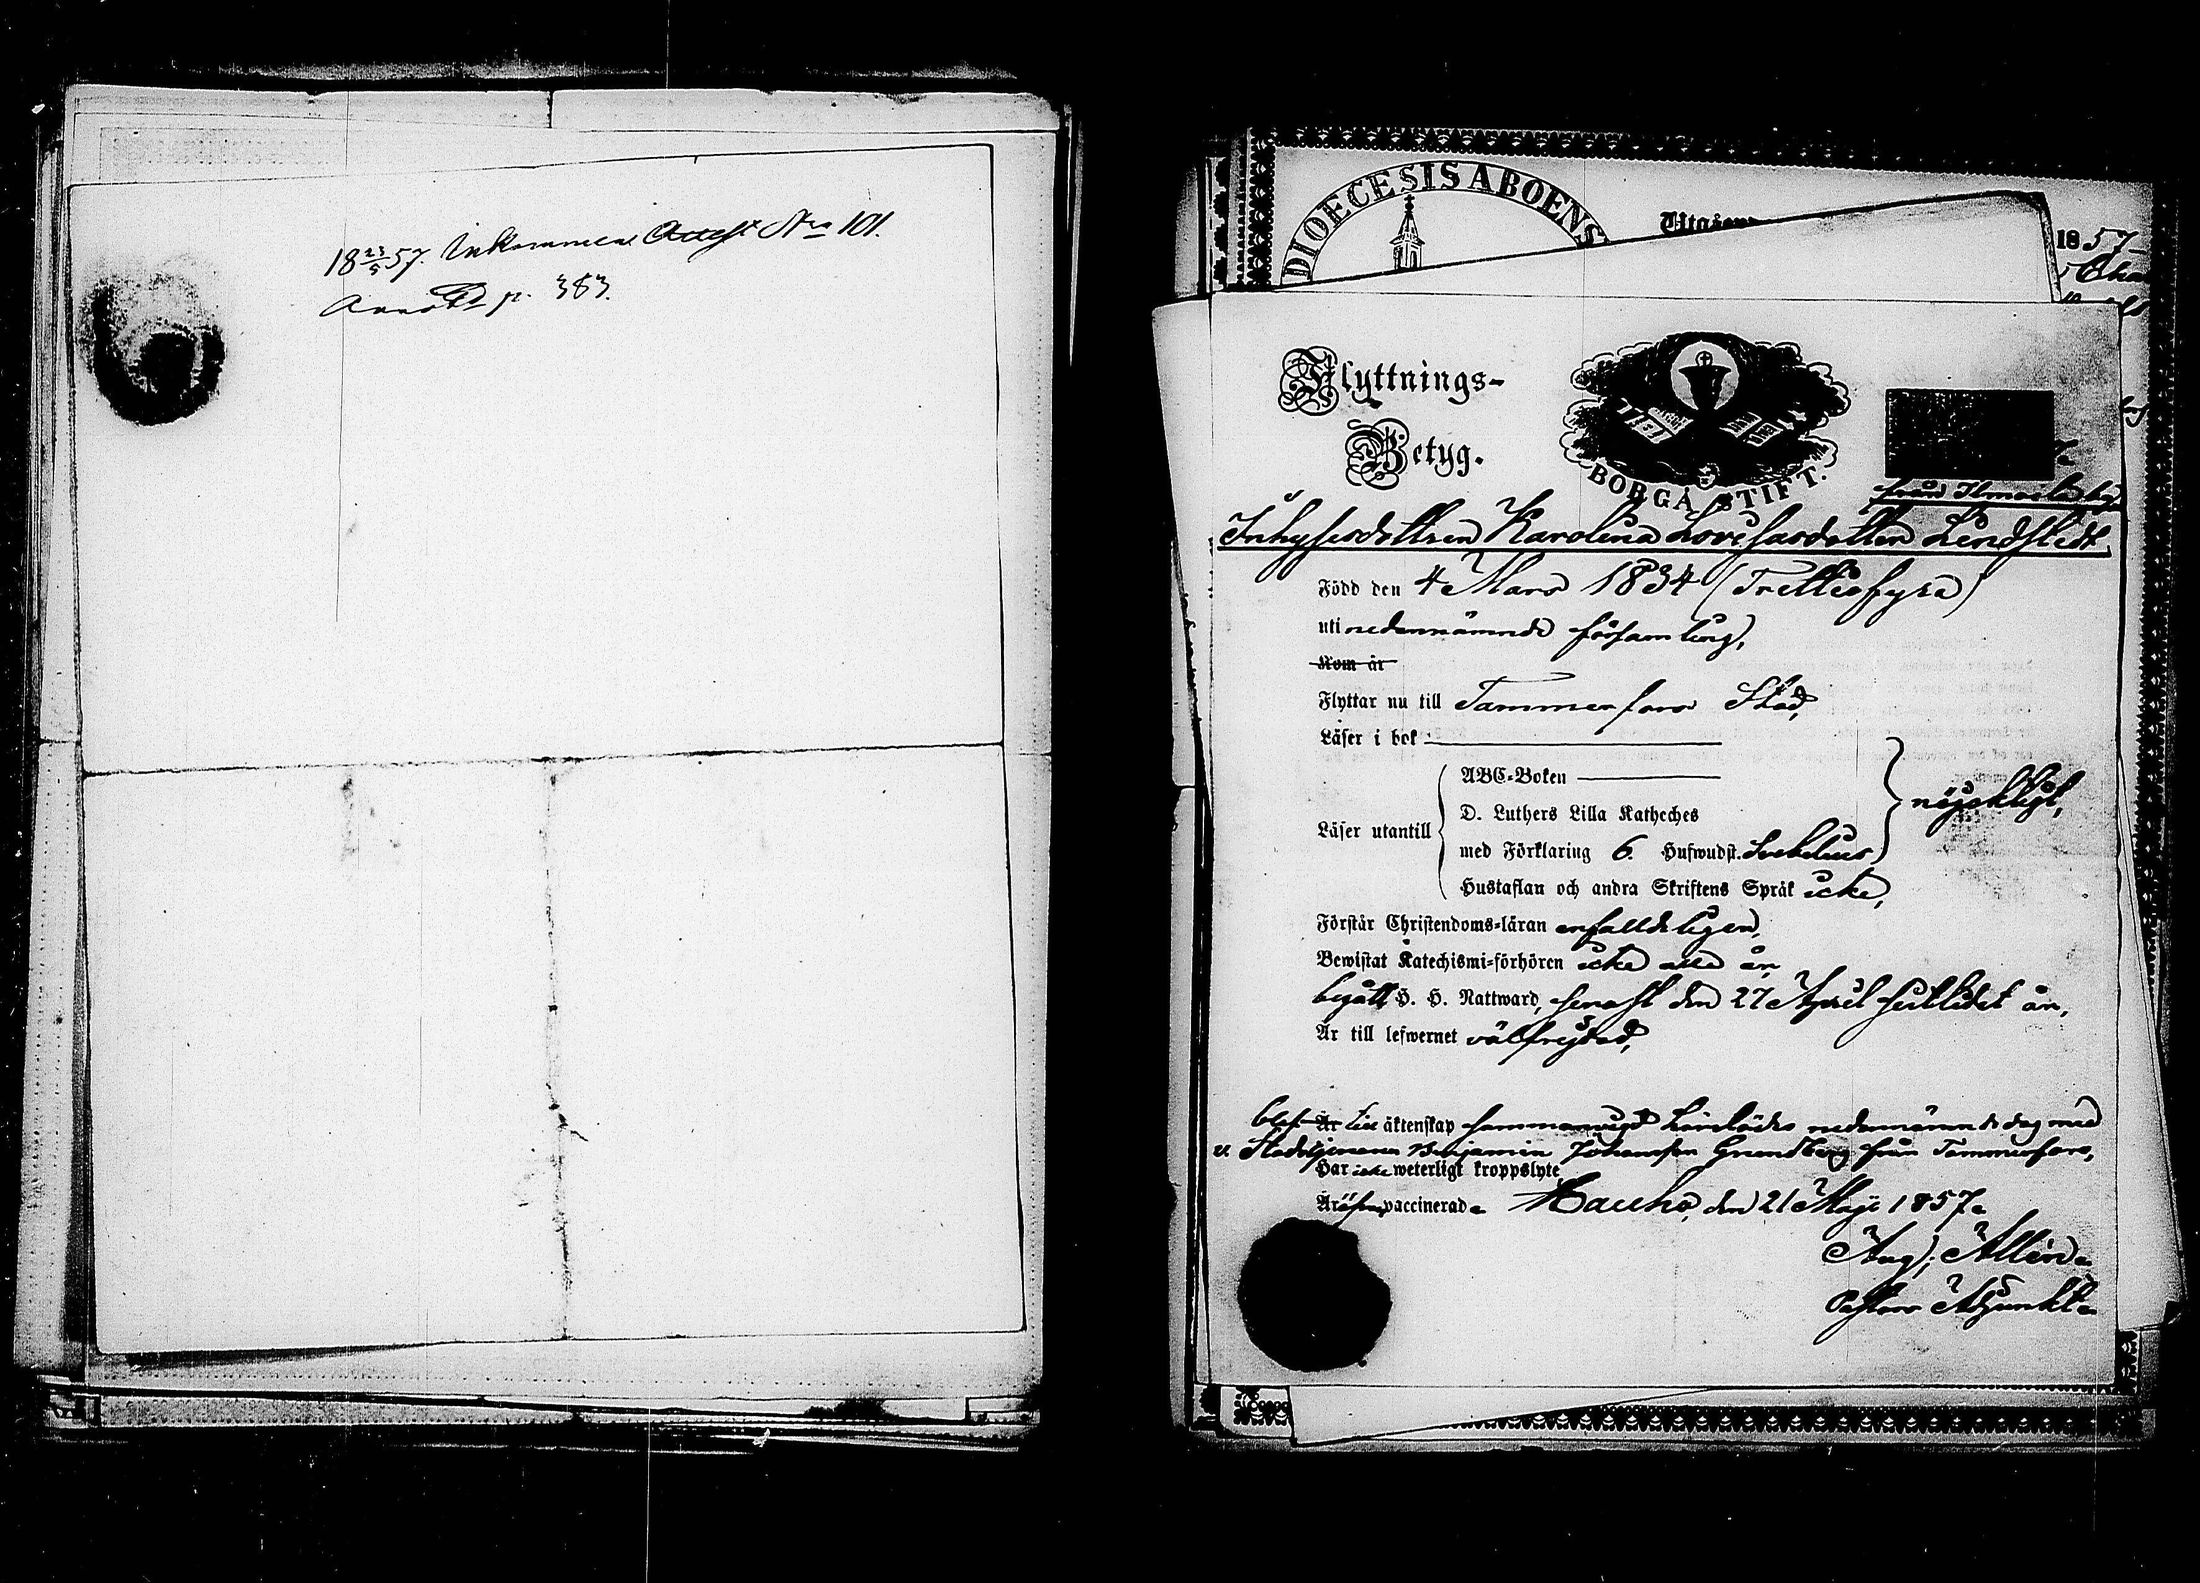 18 23/5 57. Inkommen Attest Nro 101.
Annot. p. 383.
DIOECESIS ABOENS
Utgåen
1857
Flyttnings-
Betyg.
BORGÅ STIFT.
från Ilmoila by
Inhysesdottren Karolina Lovisasdotter Lindstedt
Född den 4 Mars 1834 (Trettiofyra)
uti nedannämnde församling,
Kom år
Flyttar nu till Tammerfors Stad,
Läser i bok
ABC-Boken
D. Luthers Lilla Katheches
Läser utantill
med Förklaring 6. Hufwudst. Svebelius
nöjaktligt,
Hustaflan och andra Skriftens Språk icke,
Förstår Christendoms-läran enfaldeligen,
Bewistat Katechismi-förhören icke alla år,
begått H. H. Nattward, senast den 27 April sistlidet år,
Är till lefwernet välfrejdad,
blef Är till äktenskap sammanvigd härstädes nedannämnde dag med
v. Stadstjenaren Benjamin Johansson Grundberg från Tammerfors,
Har icke weterligt kroppslyte
Är äfven vaccinerad. Hauho, den 21 Maji 1857.
Aug. Allén.
Pastors Adjunkt.